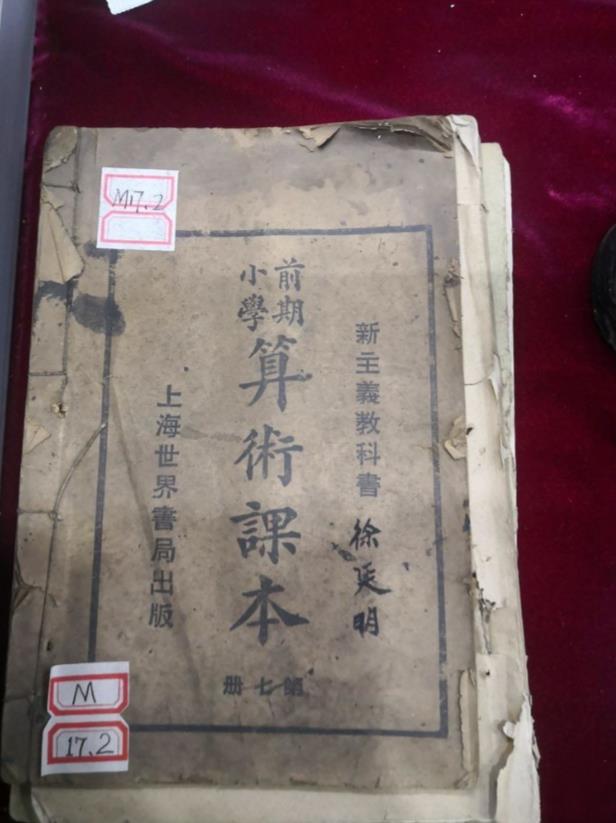 M17.2
新主義教科書
徐廷明
前期
小學
算術課本
第七册
上海世界書局出版
M
17.2